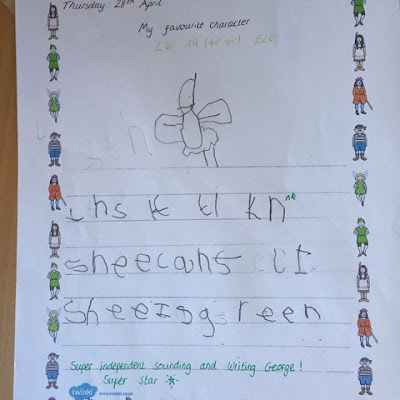 Thursday 28th April
My favourite character
LW 39 (40-60) ELG
sth
ths it tl kn nk
sheecans ll I
sheeisgreen
Super independent sounding and Writing George!
Super Star
twinkl www.twinkl.co.uk